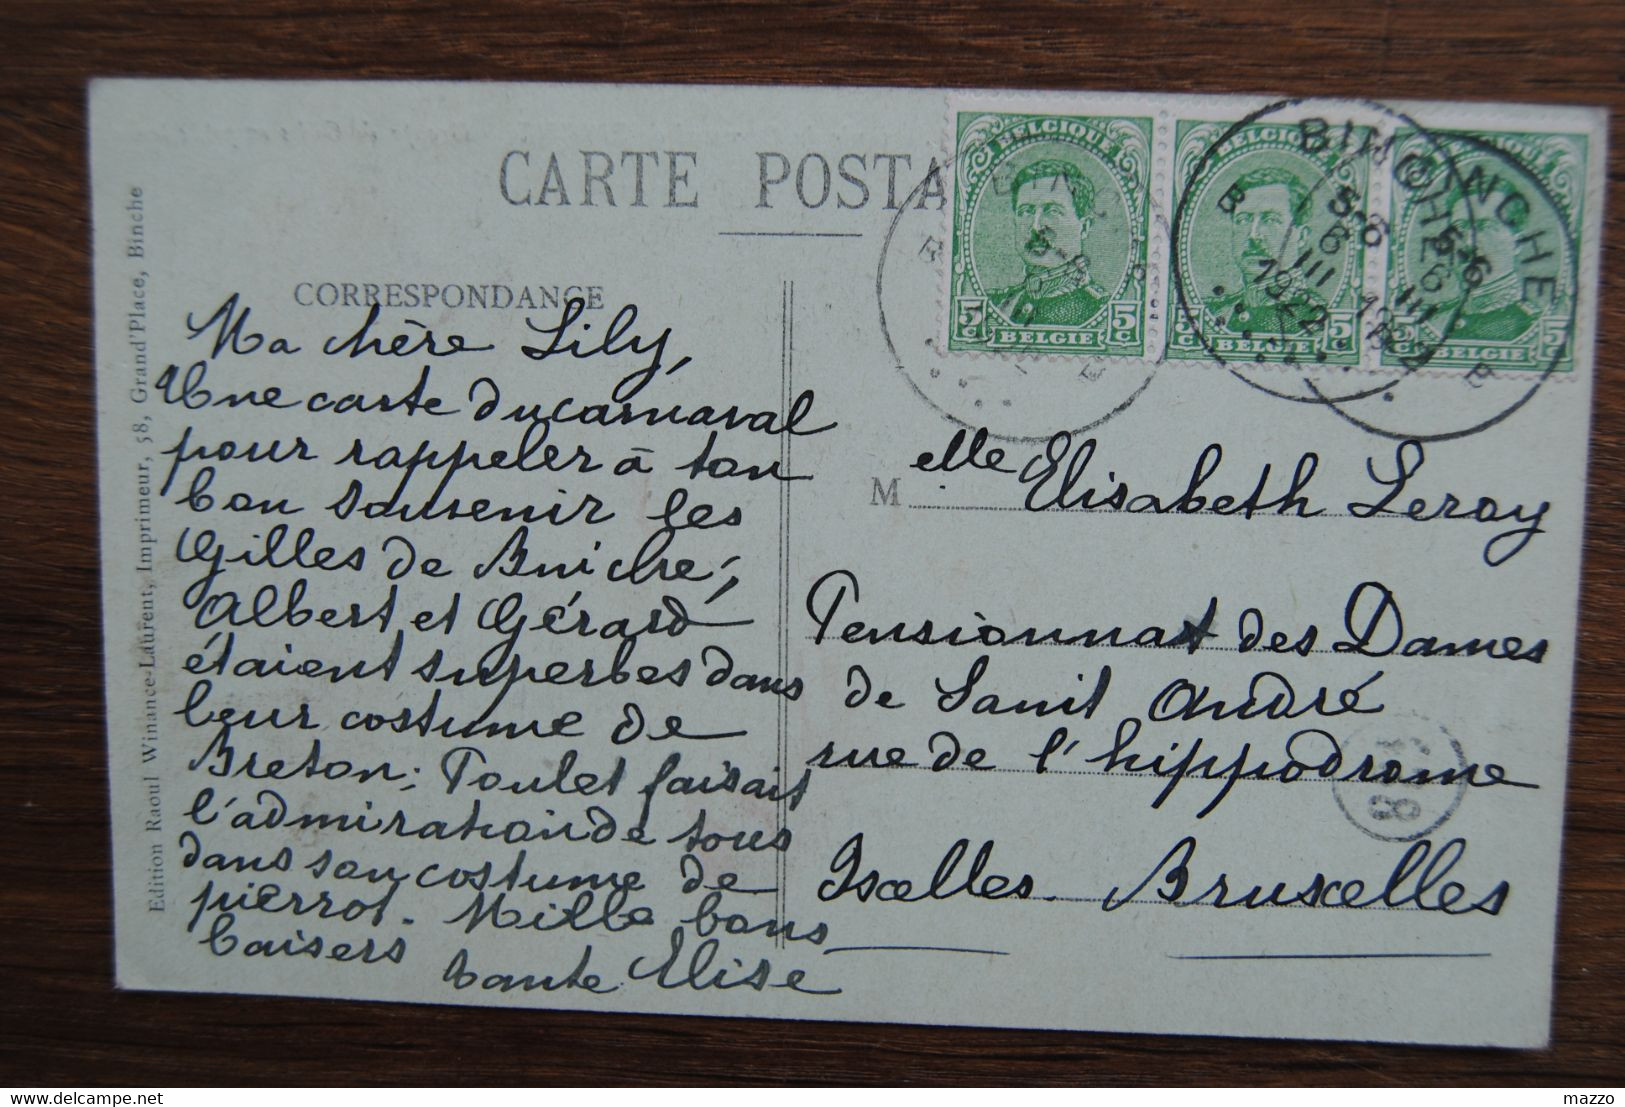 CARTE POSTA
CORRESPONDANCE
Ma chère Lily,
Une carte du carnaval
pour rappeler à ton
bon souvenir les
Gilles de Binche;
Albert et Gérard
étaient superbes dans
leur costume de
Breton; Poulet faisait
l'admiration de tous
dans son costume de
pierrot. Mille bons
baisers
tante Elise
Edition Raoul Winance-Laurent, Imprimeur, 58, Grand'Place, Binche
BELGIQUE
5c 5c
BELGIE
BELGIQUE
5c 5c
BELGIE
BELGIQUE
5c
BELGIE
BINCHE
5-6
6
III
1922
B
BINCHE
5-6
6
III
1922
B
M elle Elisabeth Leroy
Pensionnat des Dames
de Saint André
rue de l'hippodrome
Ixelles. Bruxelles
mazzo
delcampe.net